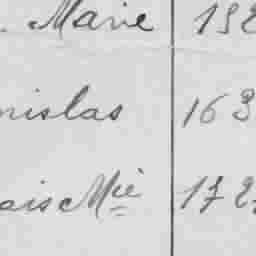 . Marie 192
nislas 163
ais Mie 172